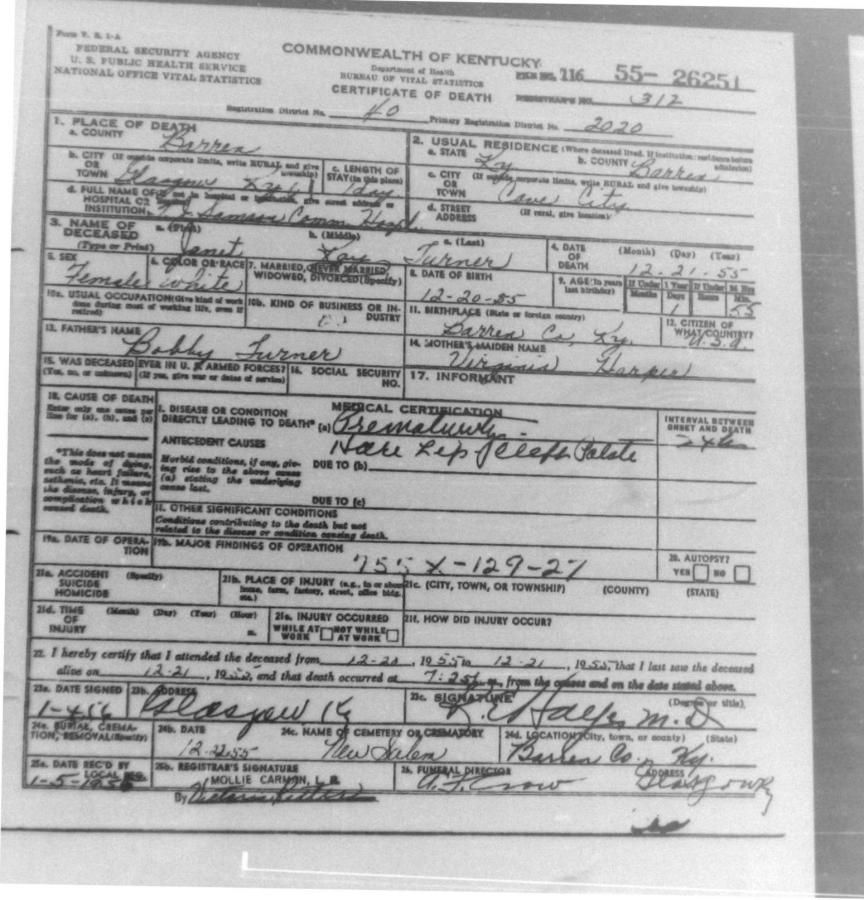 Form V. S. 1-A
FEDERAL SECURITY AGENCY
U. S. PUBLIC HEALTH SERVICE
NATIONAL OFFICE VITAL STATISTICS
COMMONWEALTH OF KENTUCKY
Department of Health
BUREAU OF VITAL STATISTICS
CERTIFICATE OF DEATH
FILE NO. 116 55- 26251
REGISTRAR'S NO. 312
Registration District No. 40 Primary Registration District No. 2020
1. PLACE OF DEATH
a. COUNTY Barren
b. CITY (If outside corporate limits, write RURAL and give township)
OR
TOWN Glasgow Ky
c. LENGTH OF STAY (in this place) 1 day
d. FULL NAME OF (If not in hospital or institution, give street address or location)
HOSPITAL OR
INSTITUTION T J Samson Comm Hospt
2. USUAL RESIDENCE (Where deceased lived. If institution: residence before admission)
a. STATE Ky b. COUNTY Barren
c. CITY (If outside corporate limits, write RURAL and give township)
OR
TOWN Cave City
d. STREET ADDRESS (If rural, give location)
3. NAME OF DECEASED (Type or Print)
a. (First) Janet b. (Middle) Kay c. (Last) Turner
4. DATE OF DEATH (Month) (Day) (Year)
12-21-55
5. SEX Female
6. COLOR OR RACE White
7. MARRIED, NEVER MARRIED, WIDOWED, DIVORCED (Specify)
8. DATE OF BIRTH 12-20-55
9. AGE (In years last birthday) If Under 1 Year Months Days 1 If Under 24 Hrs Hours Min. 55
10a. USUAL OCCUPATION (Give kind of work done during most of working life, even if retired)
10b. KIND OF BUSINESS OR INDUSTRY
11. BIRTHPLACE (State or foreign country)
Barren Co, Ky.
12. CITIZEN OF WHAT COUNTRY?
U.S.A.
13. FATHER'S NAME
Bobby Turner
14. MOTHER'S MAIDEN NAME
Virginia Harper
15. WAS DECEASED EVER IN U. S. ARMED FORCES?
(Yes, no, or unknown) (If yes, give war or dates of service)
16. SOCIAL SECURITY NO.
17. INFORMANT
18. CAUSE OF DEATH
Enter only one cause per line for (a), (b), and (c)
*This does not mean the mode of dying, such as heart failure, asthenia, etc. It means the disease, injury, or complication which caused death.
MEDICAL CERTIFICATION
I. DISEASE OR CONDITION DIRECTLY LEADING TO DEATH* (a) Prematurity
INTERVAL BETWEEN ONSET AND DEATH
ANTECEDENT CAUSES
Hare Lip Cleft Palate
Morbid conditions, if any, giving rise to the above cause (a) stating the underlying cause last.
DUE TO (b)
DUE TO (c)
II. OTHER SIGNIFICANT CONDITIONS
Conditions contributing to the death but not related to the disease or condition causing death.
19a. DATE OF OPERATION
19b. MAJOR FINDINGS OF OPERATION
755 X-129-27
20. AUTOPSY?
YES NO
21a. ACCIDENT SUICIDE HOMICIDE (Specify)
21b. PLACE OF INJURY (e.g., in or about home, farm, factory, street, office bldg. etc.)
21c. (CITY, TOWN, OR TOWNSHIP) (COUNTY) (STATE)
21d. TIME OF INJURY (Month) (Day) (Year) (Hour) m.
21e. INJURY OCCURRED
WHILE AT WORK NOT WHILE AT WORK
21f. HOW DID INJURY OCCUR?
22. I hereby certify that I attended the deceased from 12-20, 1955 to 12-21, 1955, that I last saw the deceased
alive on 12-21, 1955, and that death occurred at 7:25 m., from the causes and on the date stated above.
23a. DATE SIGNED 1-4-56
23b. ADDRESS Glasgow Ky
23c. SIGNATURE (Degree or title) M.D
24a. BURIAL, CREMATION, REMOVAL (Specify)
24b. DATE 12-22-55
24c. NAME OF CEMETERY OR CREMATORY New Salem
24d. LOCATION (City, town, or county) (State)
Barren Co. Ky.
25a. DATE REC'D BY LOCAL REG.
1-5-1956
25b. REGISTRAR'S SIGNATURE
MOLLIE CARMON, L. R.
By
26. FUNERAL DIRECTOR
A. F. Crow
ADDRESS
Glasgow Ky